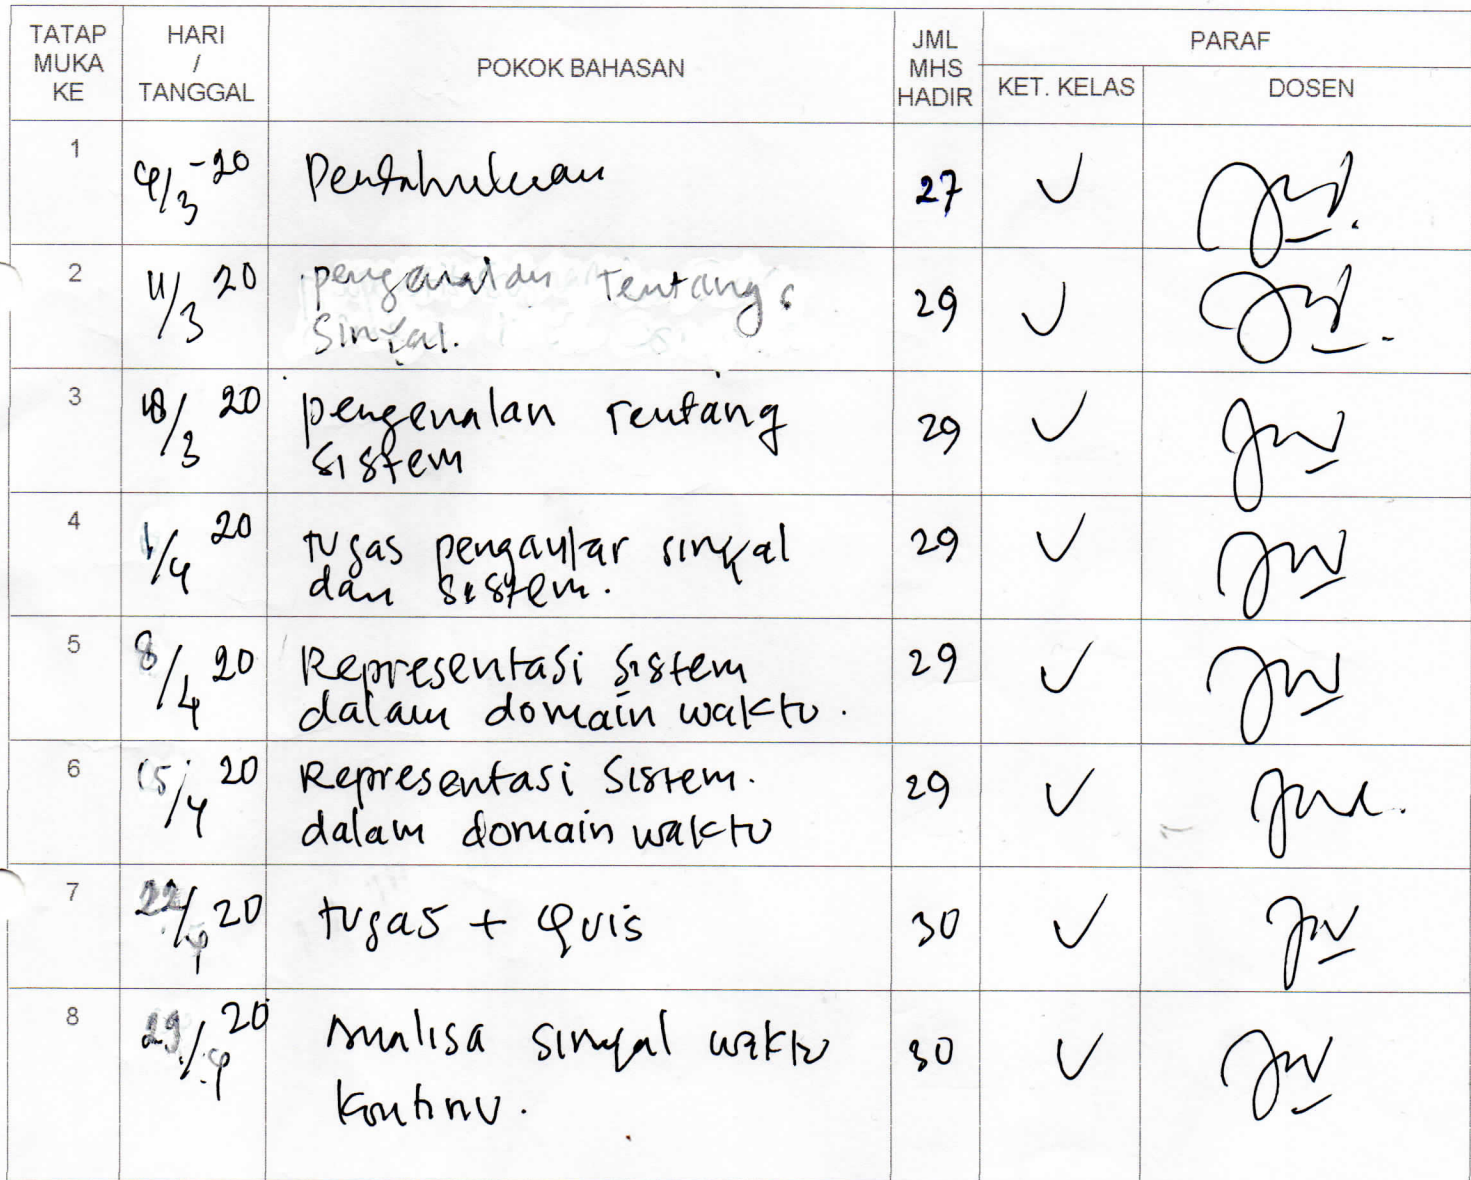 TATAP MUKA KE
HARI / TANGGAL
POKOK BAHASAN
JML MHS HADIR
PARAF
KET. KELAS
DOSEN
1 4/3-20 Pendahuluan 27
2 11/3 20 pengenalan Tentang
Sinyal. 29
3 18/3 20 pengenalan Tentang
sistem 29
4 1/4 20 tugas pengantar sinyal
dan sistem. 29
5 8/4 20 Representasi Sistem
dalam domain waktu. 29
6 15/4 20 Representasi Sistem.
dalam domain waktu 29
7 22/4 20 tugas + Quis 30
8 29/4 20 Analisa sinyal waktu
Kontinu. 30